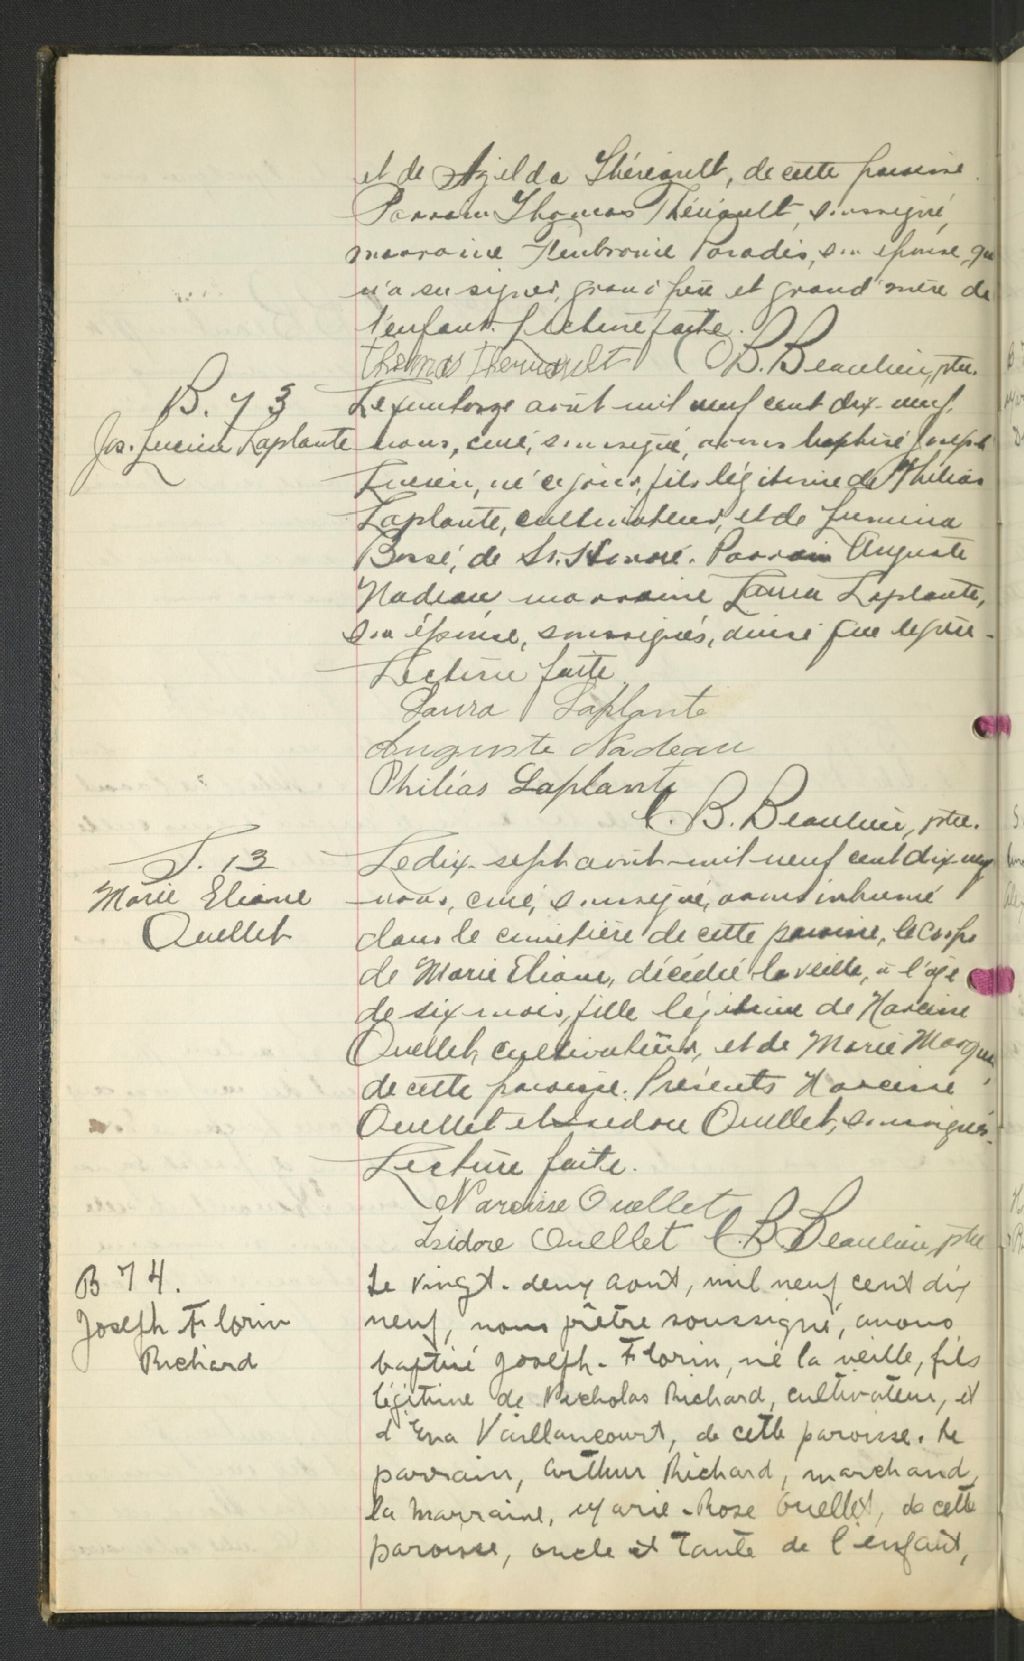 et de Azelda Thériault, de cette paroisse.
Parrain Thomas Thériault, soussigné,
marraine Paradis, son épouse, qui
n'a su signer, grand père et grand'mère de
l'enfant. Lecture faite.
Thomas Theriault C. B. Beaulieu, ptre.
B. 73
Jos. Lucien Laplante
Le quatorze août mil neuf cent dix-neuf,
nous, curé, soussigné, avons baptisé Joseph
Lucien, né ce jour, fils légitime de Philias
Laplante, cultivateur, et de Lumina
Bossé, de St. Honoré. Parrain Auguste
Nadeau, marraine Laura Laplante,
son épouse, soussignés, ainsi que le père.
Lecture faite
Laura Laplante
Auguste Nadeau
Philias Laplante
C. B. Beaulieu, ptre.
S. 13
Marie Eliane
Ouellet
Le dix-sept août mil neuf cent dix-neuf
nous, curé, soussigné, avons inhumé
dans le cimetière de cette paroisse, le corps
de Marie Eliane, décédée la veille, à l'âge
de six mois, fille légitime de Narcisse
Ouellet, cultivateur, et de Marie
de cette paroisse. Présents Narcisse
Ouellet et Isidore Ouellet, soussignés.
Lecture faite.
Narcisse Ouellet
Isidore Ouellet C. B. Beaulieu, ptre
B 74.
Joseph Florin
Richard
Le vingt-deux août, mil neuf cent dix
neuf, nous prêtre soussigné, avons
baptisé Joseph-Florin, né la veille, fils
légitime de Nicholas Richard, cultivateur, et
d'Eva Vaillancourt, de cette paroisse. Le
parrain, Arthur Richard, marchand,
la marraine, Marie-Rose Ouellet, de cette
paroisse, oncle et tante de l'enfant,